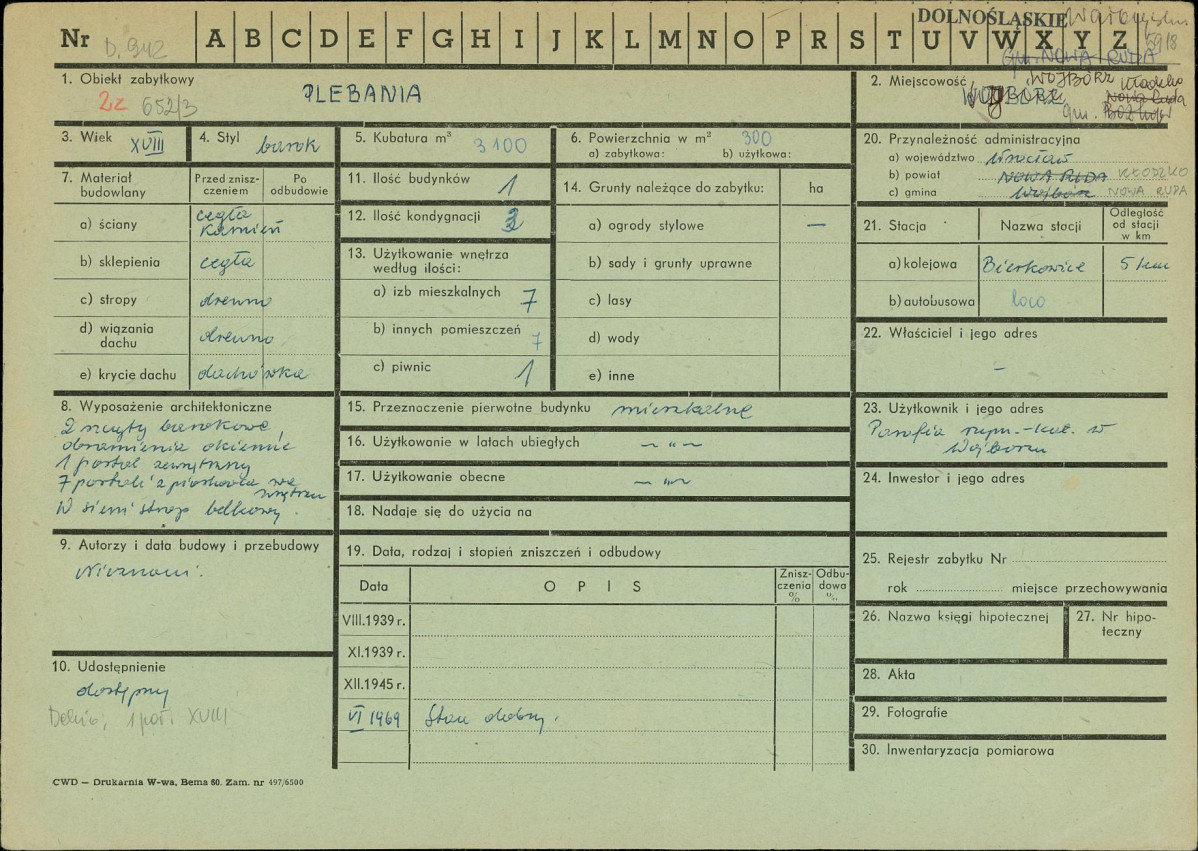 DOLNOŚLĄSKIE
Nr D. 942 A B C D E F G H I J K L M N O P R S T U V W X Y Z 5918
gm. NOWA RUDA
1. Obiekt zabytkowy
PLEBANIA
Zz 652/3
2. Miejscowość WOJBÓRZ
WOJBÓRZ
gm.
3. Wiek XVIII
4. Styl barok
5. Kubatura m³ 3100
6. Powierzchnia w m² 300
a) zabytkowa: b) użytkowa:
7. Materiał budowlany
Przed zniszczeniem
Po odbudowie
a) ściany cegła
kamień
b) sklepienia cegła
c) stropy drewno
d) wiązania dachu drewno
e) krycie dachu dachówka
8. Wyposażenie architektoniczne
2 szczyty barokowe
obramienia okienne
1 portal zewnętrzny
7 portali z piaskowca we
wnętrzu
W sieni strop belkowy.
9. Autorzy i data budowy i przebudowy
Nieznani.
10. Udostępnienie
dostępny
Dehio; 1 poł. XVIII
11. Ilość budynków 1
12. Ilość kondygnacji
13. Użytkowanie wnętrza
według ilości:
a) izb mieszkalnych 7
b) innych pomieszczeń 7
c) piwnic 1
14. Grunty należące do zabytku: ha
a) ogrody stylowe —
b) sady i grunty uprawne
c) lasy
d) wody
e) inne
15. Przeznaczenie pierwotne budynku mieszkalne
16. Użytkowanie w latach ubiegłych — „ —
17. Użytkowanie obecne — „ —
18. Nadaje się do użycia na
19. Data, rodzaj i stopień zniszczeń i odbudowy
Data
O P I S
Zniszczenia %
Odbudowa %
VIII.1939 r.
XI.1939 r.
XII.1945 r.
VI 1969 Stan dobry.
20. Przynależność administracyjna
a) województwo Wrocław
b) powiat NOWA RUDA KŁODZKO
c) gmina Wojbórz NOWA RUDA
21. Stacja
Nazwa stacji
Odległość od stacji w km
a) kolejowa Bierkowice 5 km
b) autobusowa loco
22. Właściciel i jego adres
–
23. Użytkownik i jego adres
Parafia rzym.-kat. w
Wojborzu
24. Inwestor i jego adres
25. Rejestr zabytku Nr
rok miejsce przechowywania
26. Nazwa księgi hipotecznej
27. Nr hipoteczny
28. Akta
29. Fotografie
30. Inwentaryzacja pomiarowa
CWD — Drukarnia W-wa, Bema 60. Zam. nr 497/6500